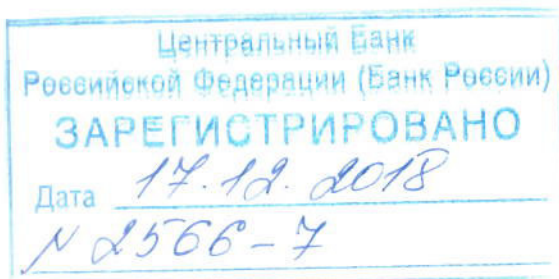 Центральный Банк
Российской Федерации (Банк России)
ЗАРЕГИСТРИРОВАНО
Дата 17.12.2018
N 2566-7